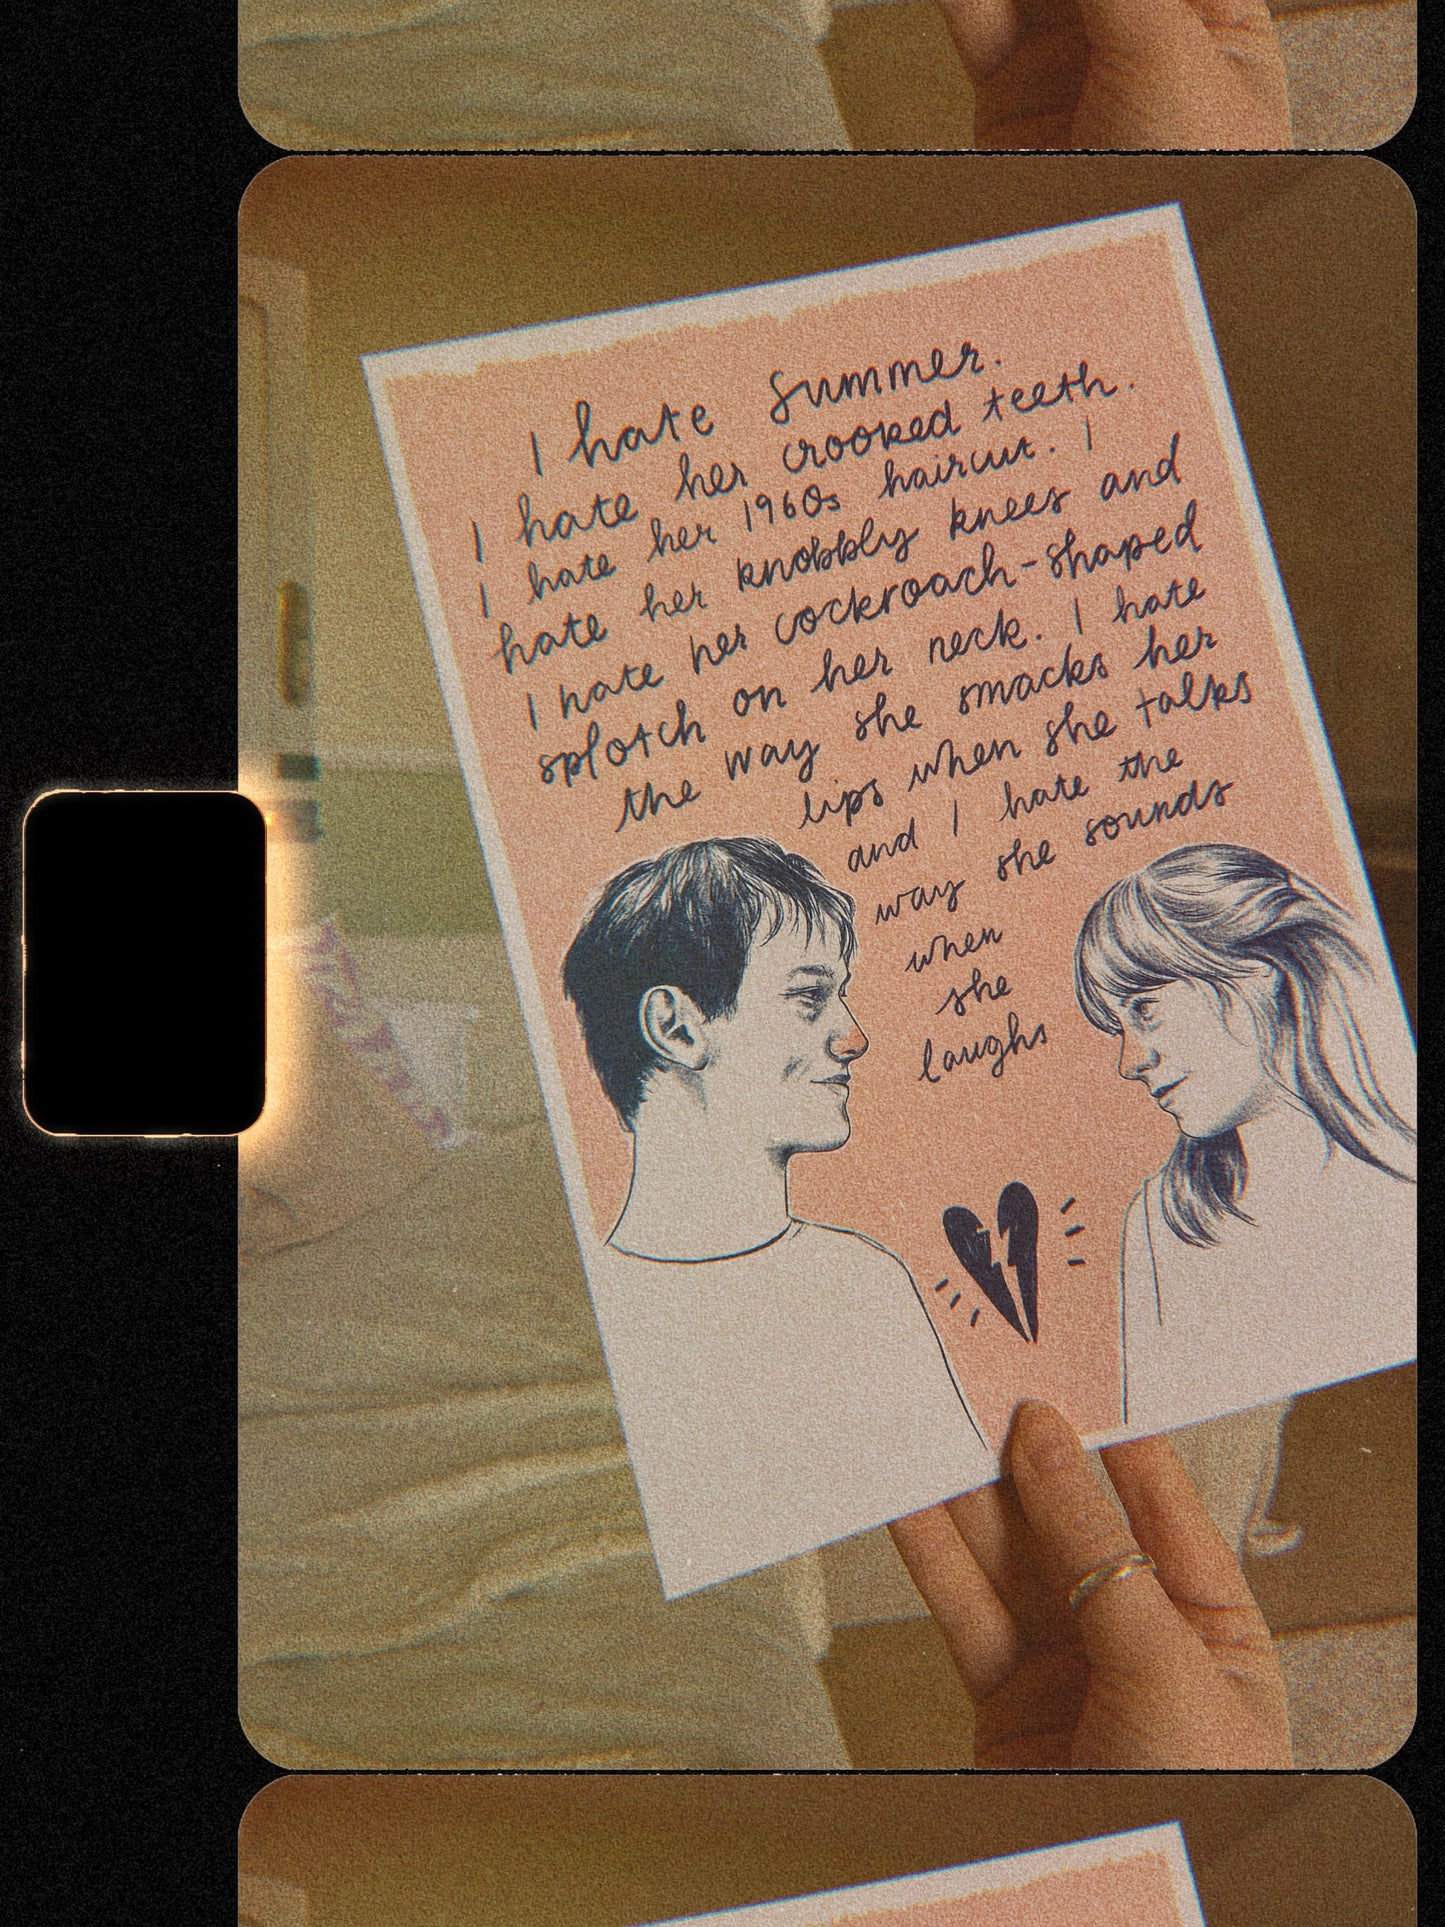 I hate Summer.
I hate her crooked teeth.
I hate her 1960s haircut. I
hate her knobbly knees and
I hate her cockroach-shaped
splotch on her neck. I hate
the way she smacks her
lips when she talks
and I hate the
way she sounds
when
she
laughs